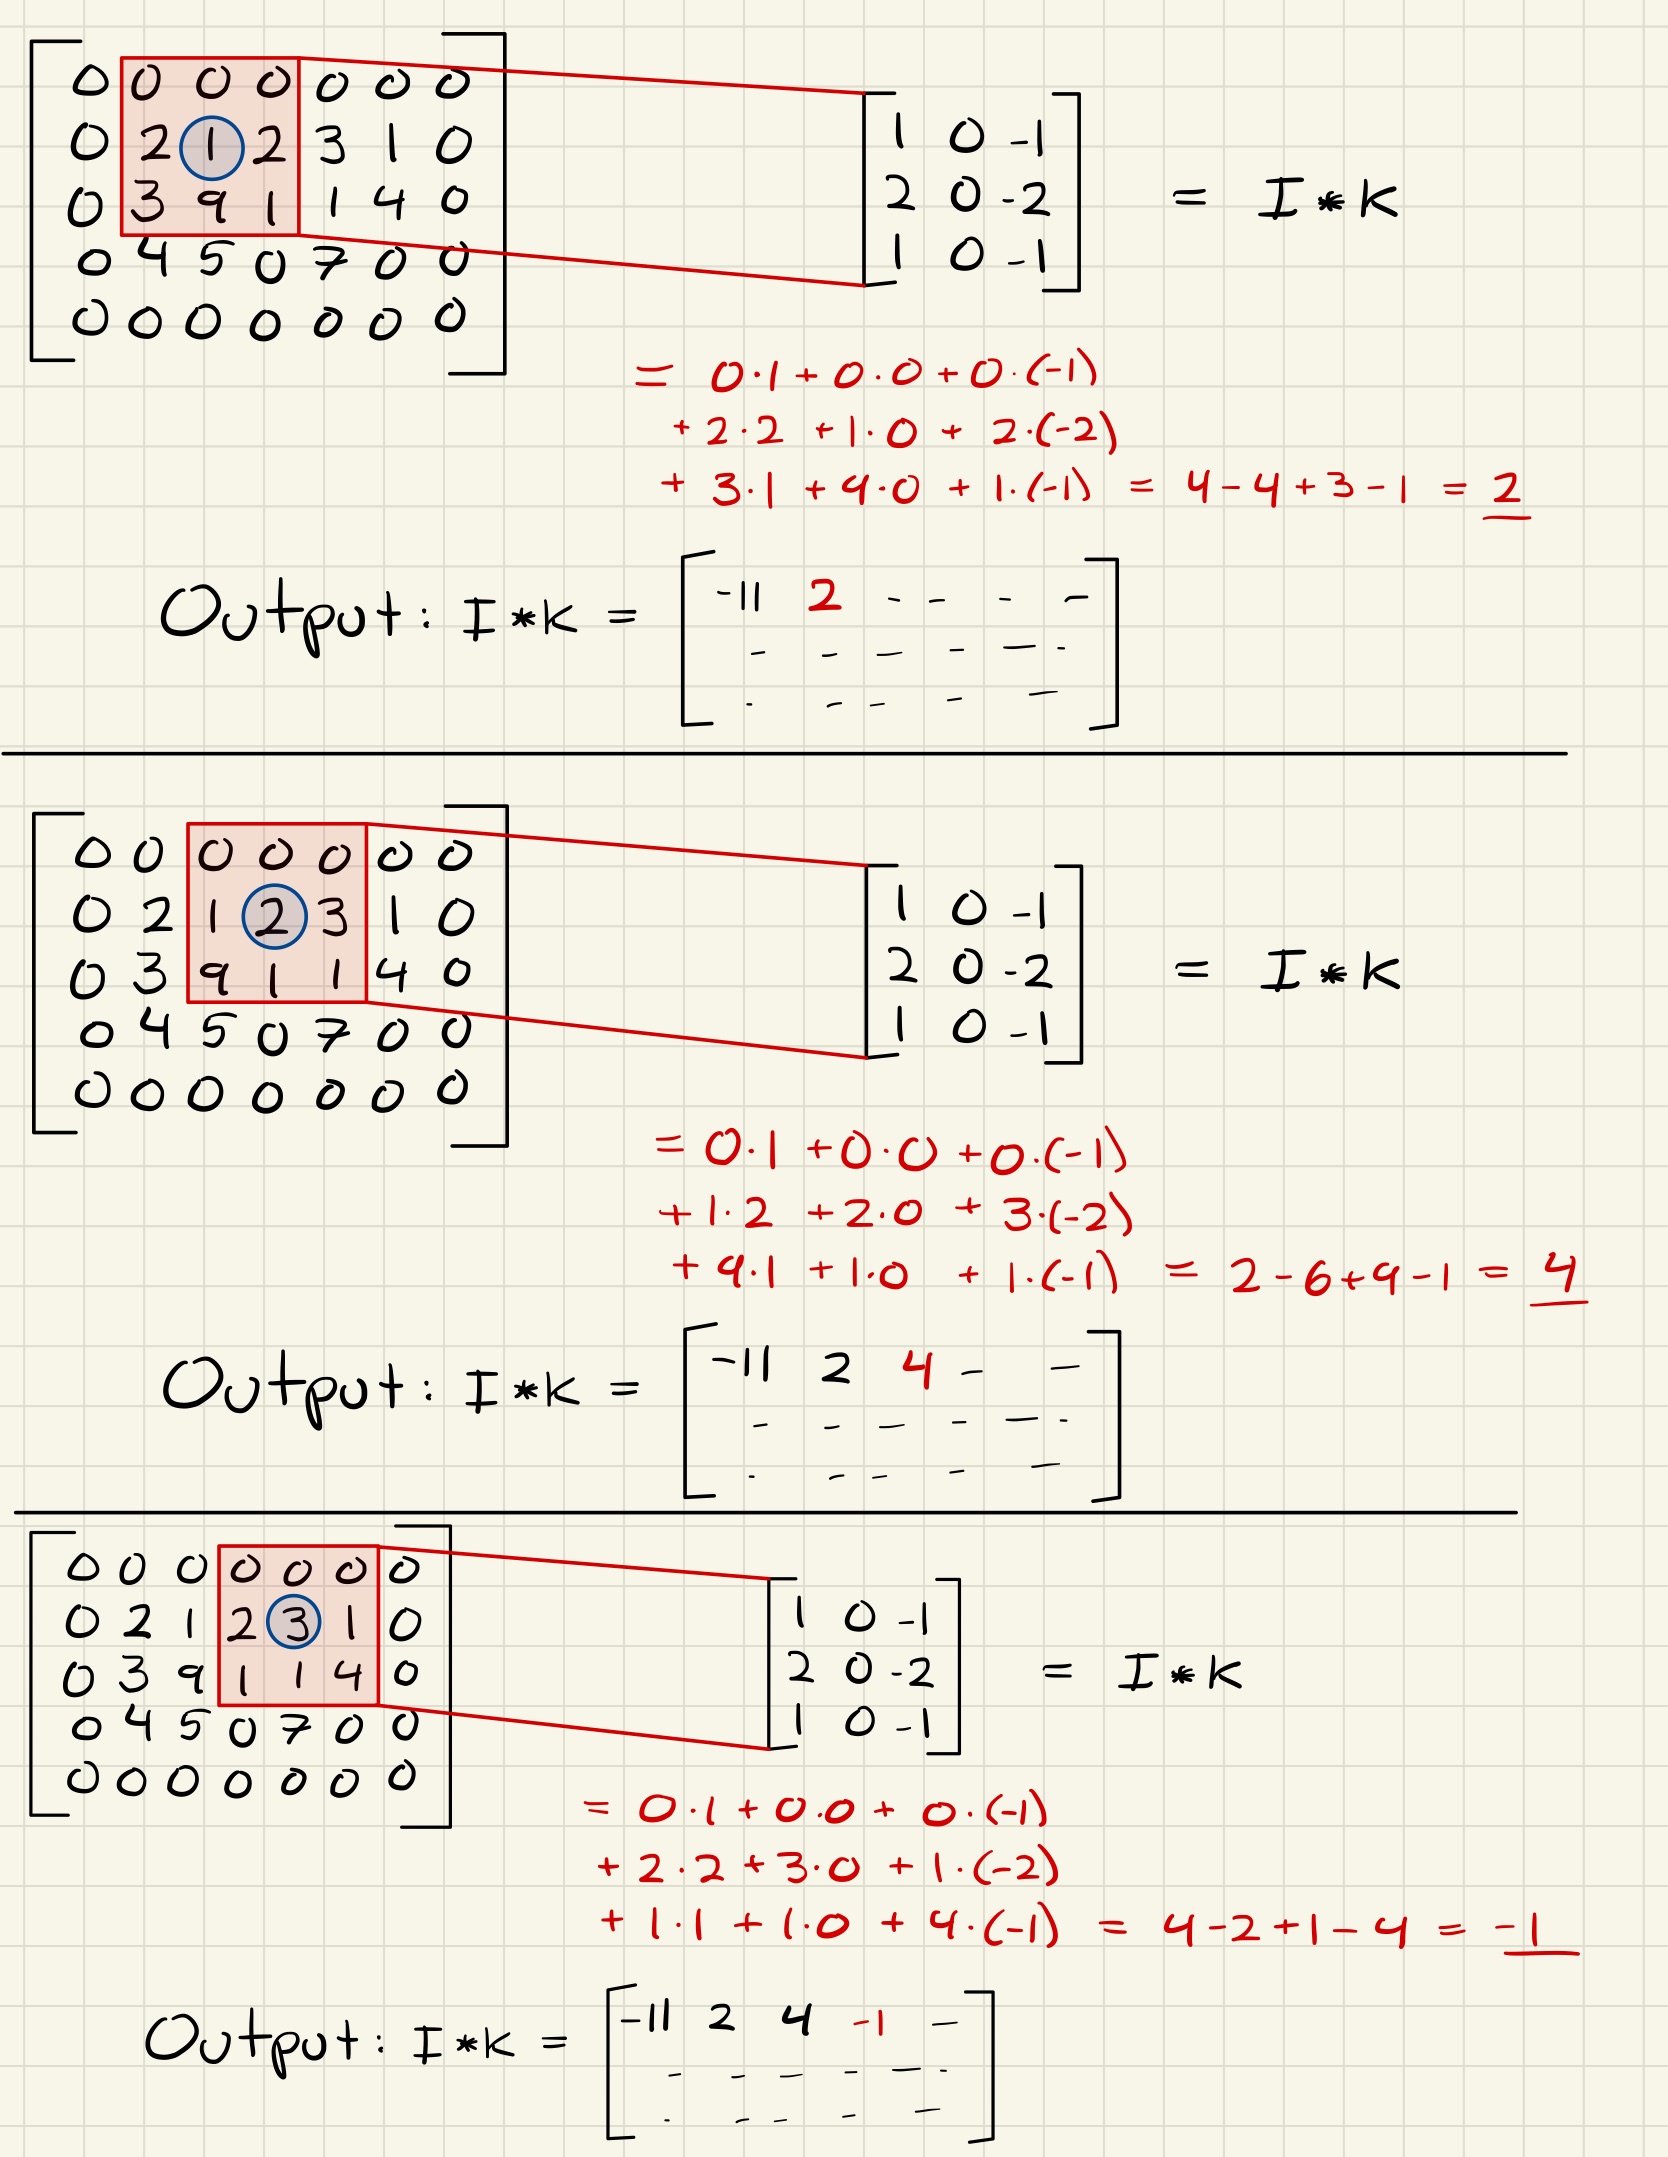 0 0 0 0 0 0 0
0 2 1 2 3 1 0
0 3 9 1 1 4 0
0 4 5 0 7 0 0
0 0 0 0 0 0 0
1 0 -1
2 0 -2
1 0 -1
= I * K
= 0·1 + 0·0 + 0·(-1)
+ 2·2 + 1·0 + 2·(-2)
+ 3·1 + 9·0 + 1·(-1) = 4 - 4 + 3 - 1 = 2
Output: I * K =
-11 2 - - - -
- - - - - -
- - - - -
0 0 0 0 0 0 0
0 2 1 2 3 1 0
0 3 9 1 1 4 0
0 4 5 0 7 0 0
0 0 0 0 0 0 0
1 0 -1
2 0 -2
1 0 -1
= I * K
= 0·1 + 0·0 + 0·(-1)
+ 1·2 + 2·0 + 3·(-2)
+ 9·1 + 1·0 + 1·(-1) = 2 - 6 + 9 - 1 = 4
Output: I * K =
-11 2 4 - -
- - - - - -
- - - - -
0 0 0 0 0 0 0
0 2 1 2 3 1 0
0 3 9 1 1 4 0
0 4 5 0 7 0 0
0 0 0 0 0 0 0
1 0 -1
2 0 -2
1 0 -1
= I * K
= 0·1 + 0·0 + 0·(-1)
+ 2·2 + 3·0 + 1·(-2)
+ 1·1 + 1·0 + 4·(-1) = 4 - 2 + 1 - 4 = -1
Output: I * K =
-11 2 4 -1 -
- - - - - -
- - - - -